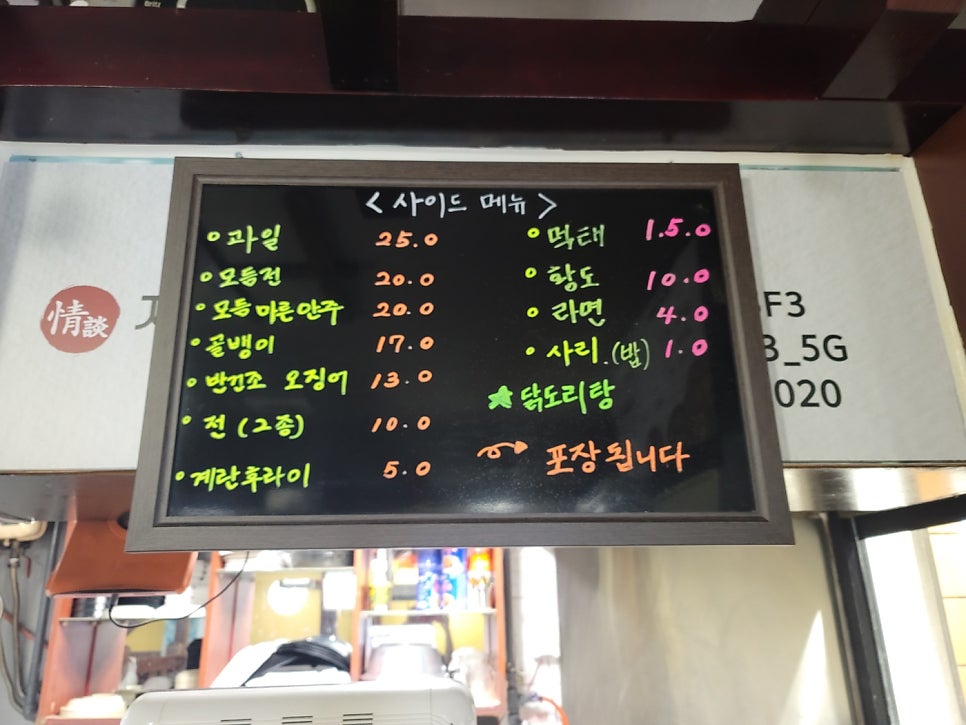 < 사이드 메뉴 >
과일 25.0
모듬전 20.0
모듬 마른안주 20.0
골뱅이 17.0
반건조 오징어 13.0
전 (2종) 10.0
계란후라이 5.0
먹태 1.5.0
황도 10.0
라면 4.0
사리.(밥) 1.0
★닭도리탕
포장 됩니다
情談
F3
3_5G
020